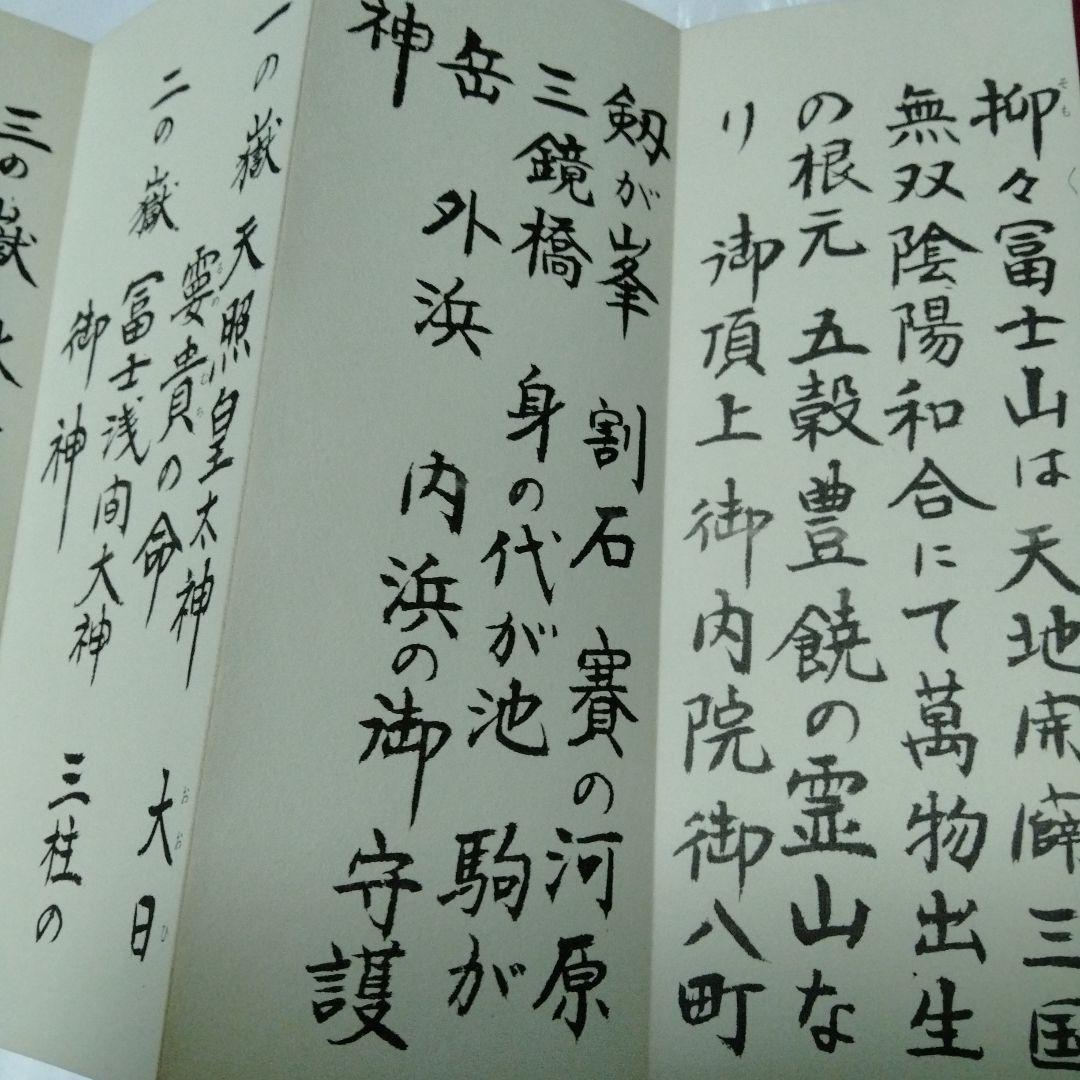 抑々冨士山は天地開闢三国
無双陰陽和合にて萬物出生
の根元 五穀豊饒の霊山な
り 御頂上 御内院 御八町
剱が峯 割石 賽の河原
三鏡橋 身の代が池 駒が
岳 外浜 内浜の御守護
神
一の嶽 天照皇太神 大日
孁貴の命 冨士浅間大神 三柱の
二の嶽
御神
三の嶽